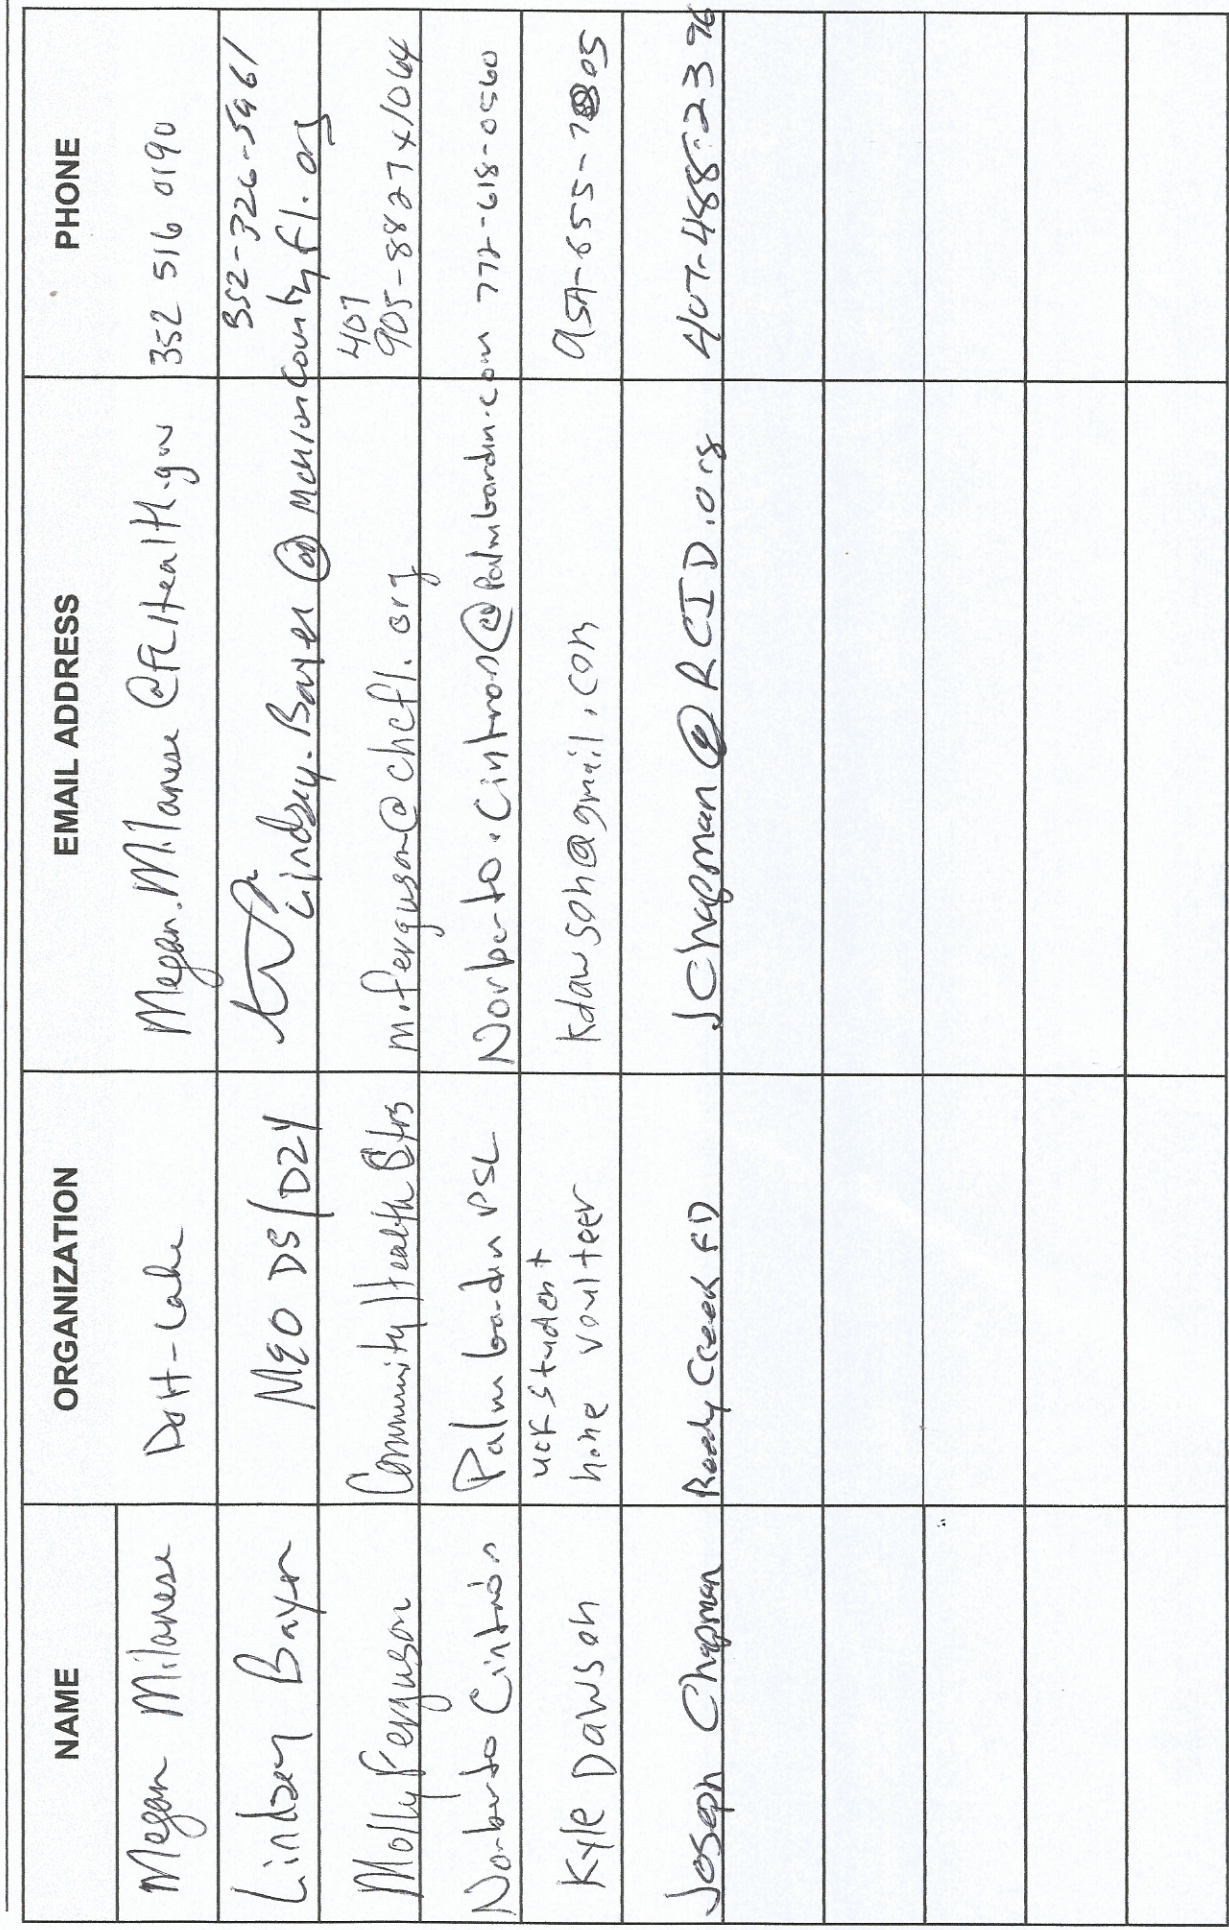 NAME ORGANIZATION EMAIL ADDRESS PHONE
Megan Milanese DOH-Lake Megan.Milanese@flHealth.gov 352 516 0190
Lindsey Bayer MEO D5/D24 Lindsey.Bayer@marioncountyfl.org 352-326-5961
Molly Ferguson Community Health Ctrs m.ferguson@chcfl.org 407 905-8827 x1064
Norberto Cintrón Palm Garden PSL Norberto.Cintron@Palmgarden.com 772-618-0560
Kyle Dawson ucf student Kdawson@gmail.com 954-655-7805
hone voulteer
Joseph Chapman Reedy Creek FD JChapman@RCID.org 407-488-2396